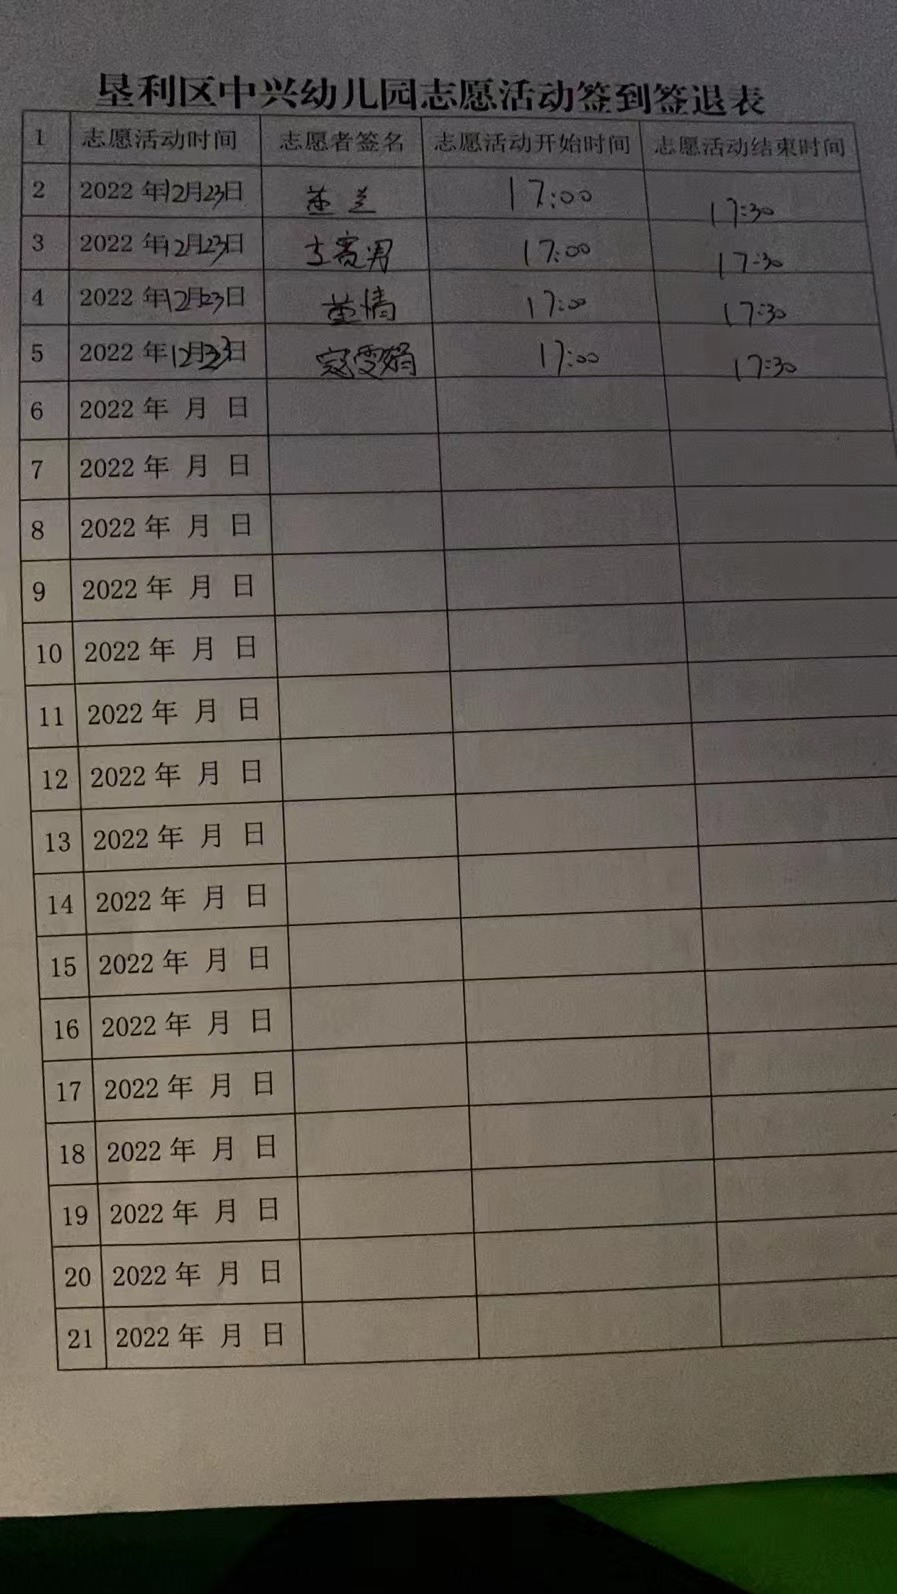 垦利区中兴幼儿园志愿活动签到签退表
1 志愿活动时间 志愿者签名 志愿活动开始时间 志愿活动结束时间
2 2022年12月23日 兰 17:00 17:30
3 2022年12月23日 赛男 17:00 17:30
4 2022年12月23日 董情 17:00 17:30
5 2022年12月23日 寇雯娟 17:00 17:30
6 2022年 月 日
7 2022年 月 日
8 2022年 月 日
9 2022年 月 日
10 2022年 月 日
11 2022年 月 日
12 2022年 月 日
13 2022年 月 日
14 2022年 月 日
15 2022年 月 日
16 2022年 月 日
17 2022年 月 日
18 2022年 月 日
19 2022年 月 日
20 2022年 月 日
21 2022年 月 日